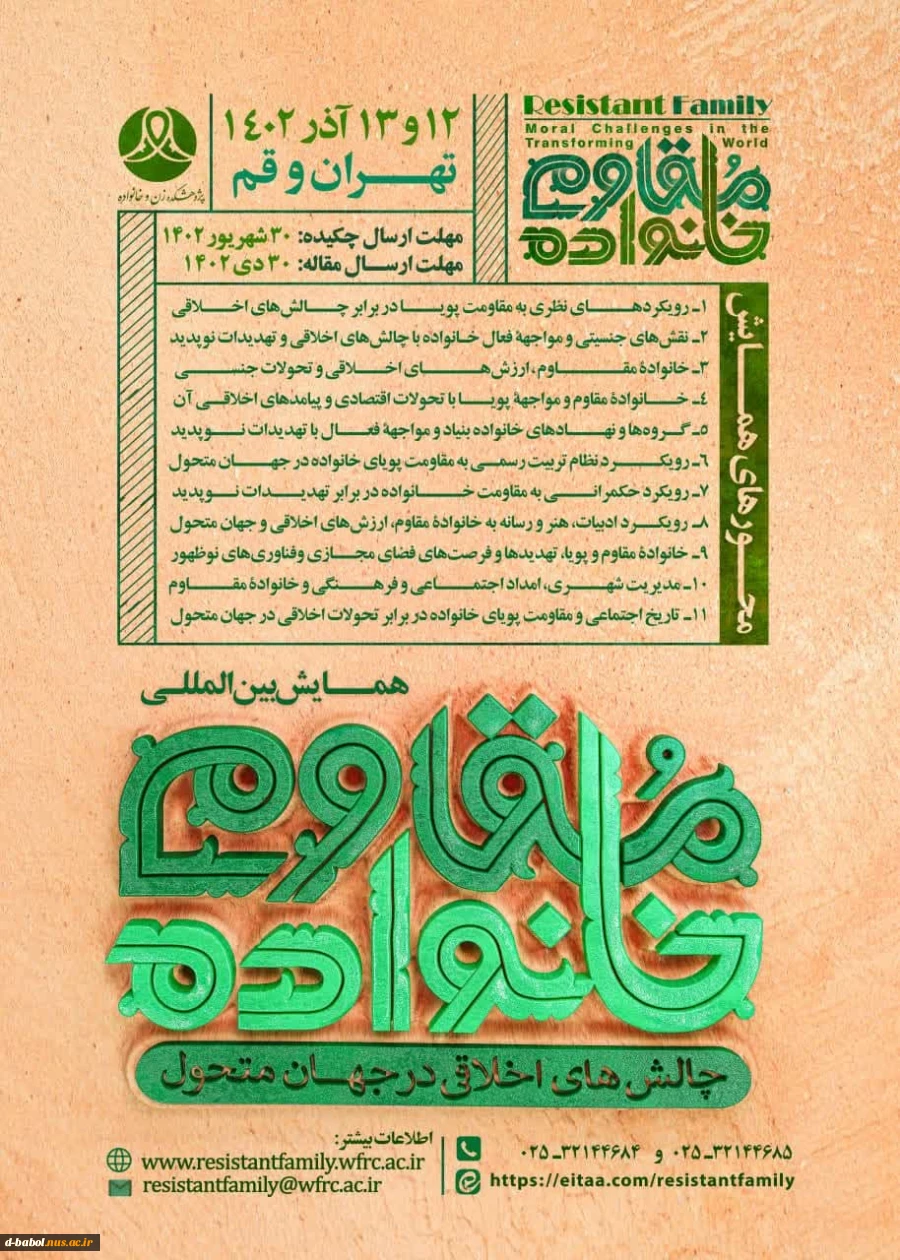 Resistant Family
Moral Challenges in the
Transforming World
خانواده مقاوم
۱۲ و ۱۳ آذر ۱۴۰۲
تهران و قم
پژوهشکده زن و خانواده
مهلت ارسال چکیده: ۳۰ شهریور ۱۴۰۲
مهلت ارسال مقاله: ۳۰ دی ۱۴۰۲
محورهای همایش
۱ـ رویکردهای نظری به مقاومت پویا در برابر چالش‌های اخلاقی
۲ـ نقش‌های جنسیتی و مواجههٔ فعال خانواده با چالش‌های اخلاقی و تهدیدات نوپدید
۳ـ خانوادهٔ مقاوم، ارزش‌های اخلاقی و تحولات جنسی
۴ـ خانوادهٔ مقاوم و مواجههٔ پویا با تحولات اقتصادی و پیامدهای اخلاقی آن
۵ـ گروه‌ها و نهادهای خانواده بنیاد و مواجههٔ فعال با تهدیدات نوپدید
۶ـ رویکرد نظام تربیت رسمی به مقاومت پویای خانواده در جهان متحول
۷ـ رویکرد حکمرانی به مقاومت خانواده در برابر تهدیدات نوپدید
۸ـ رویکرد ادبیات، هنر و رسانه به خانوادهٔ مقاوم، ارزش‌های اخلاقی و جهان متحول
۹ـ خانوادهٔ مقاوم و پویا، تهدیدها و فرصت‌های فضای مجازی وفناوری‌های نوظهور
۱۰ـ مدیریت شهری، امداد اجتماعی و فرهنگی و خانوادهٔ مقاوم
۱۱ـ تاریخ اجتماعی و مقاومت پویای خانواده در برابر تحولات اخلاقی در جهان متحول
همایش بین‌المللی
خانواده مقاوم
چالش های اخلاقی در جهان متحول
اطلاعات بیشتر:
www.resistantfamily.wfrc.ac.ir
resistantfamily@wfrc.ac.ir
۰۲۵-۳۲۱۴۴۶۸۵ و ۰۲۵-۳۲۱۴۴۶۸۴
https://eitaa.com/resistantfamily
d-babol.nus.ac.ir